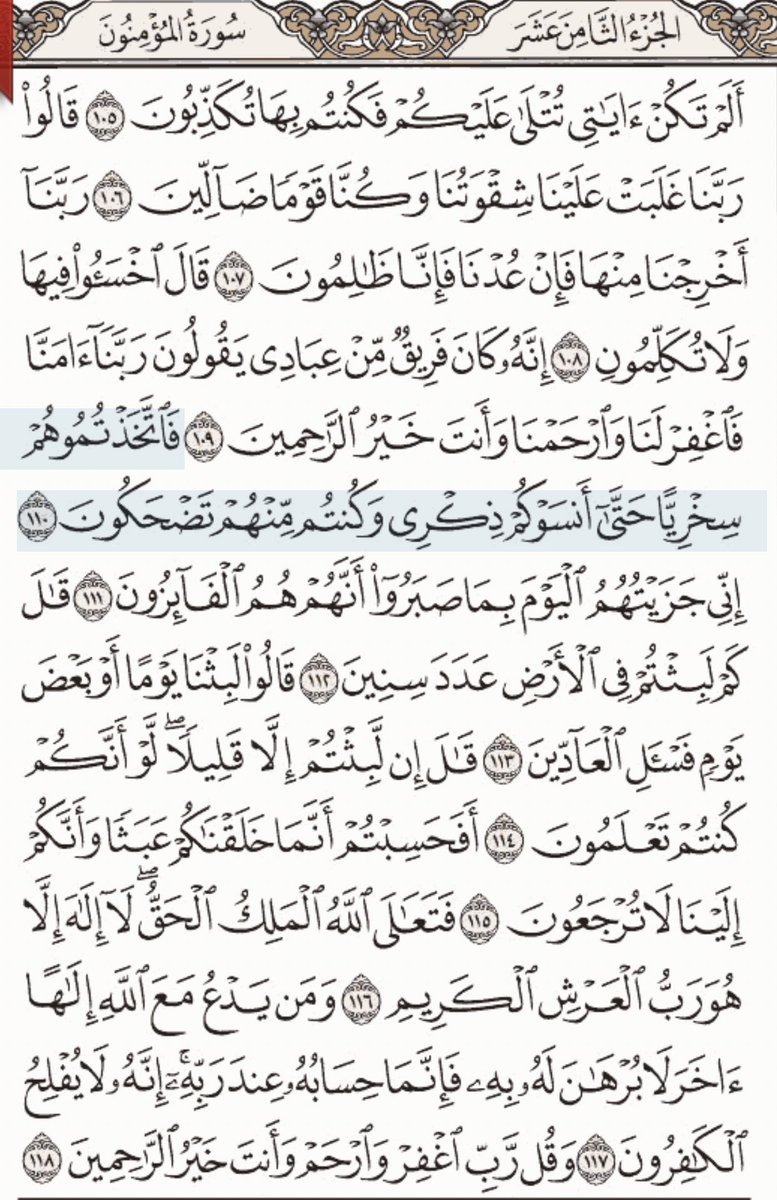 الجُزْءُ الثَّامِنَ عَشَرَ
سُورَةُ المُؤْمِنُونَ
أَلَمْ تَكُنْ ءَايَـٰتِى تُتْلَىٰ عَلَيْكُمْ فَكُنتُم بِهَا تُكَذِّبُونَ ١٠٥ قَالُوا۟
رَبَّنَا غَلَبَتْ عَلَيْنَا شِقْوَتُنَا وَكُنَّا قَوْمًا ضَآلِّينَ ١٠٦ رَبَّنَآ
أَخْرِجْنَا مِنْهَا فَإِنْ عُدْنَا فَإِنَّا ظَـٰلِمُونَ ١٠٧ قَالَ ٱخْسَـُٔوا۟ فِيهَا
وَلَا تُكَلِّمُونِ ١٠٨ إِنَّهُۥ كَانَ فَرِيقٌ مِّنْ عِبَادِى يَقُولُونَ رَبَّنَآ ءَامَنَّا
فَٱغْفِرْ لَنَا وَٱرْحَمْنَا وَأَنتَ خَيْرُ ٱلرَّٰحِمِينَ ١٠٩ فَٱتَّخَذْتُمُوهُمْ
سِخْرِيًّا حَتَّىٰٓ أَنسَوْكُمْ ذِكْرِى وَكُنتُم مِّنْهُمْ تَضْحَكُونَ ١١٠
إِنِّى جَزَيْتُهُمُ ٱلْيَوْمَ بِمَا صَبَرُوٓا۟ أَنَّهُمْ هُمُ ٱلْفَآئِزُونَ ١١١ قَـٰلَ
كَمْ لَبِثْتُمْ فِى ٱلْأَرْضِ عَدَدَ سِنِينَ ١١٢ قَالُوا۟ لَبِثْنَا يَوْمًا أَوْ بَعْضَ
يَوْمٍ فَسْـَٔلِ ٱلْعَآدِّينَ ١١٣ قَـٰلَ إِن لَّبِثْتُمْ إِلَّا قَلِيلًا ۖ لَّوْ أَنَّكُمْ
كُنتُمْ تَعْلَمُونَ ١١٤ أَفَحَسِبْتُمْ أَنَّمَا خَلَقْنَـٰكُمْ عَبَثًا وَأَنَّكُمْ
إِلَيْنَا لَا تُرْجَعُونَ ١١٥ فَتَعَـٰلَى ٱللَّهُ ٱلْمَلِكُ ٱلْحَقُّ ۖ لَآ إِلَـٰهَ إِلَّا
هُوَ رَبُّ ٱلْعَرْشِ ٱلْكَرِيمِ ١١٦ وَمَن يَدْعُ مَعَ ٱللَّهِ إِلَـٰهًا
ءَاخَرَ لَا بُرْهَـٰنَ لَهُۥ بِهِۦ فَإِنَّمَا حِسَابُهُۥ عِندَ رَبِّهِۦٓ ۚ إِنَّهُۥ لَا يُفْلِحُ
ٱلْكَـٰفِرُونَ ١١٧ وَقُل رَّبِّ ٱغْفِرْ وَٱرْحَمْ وَأَنتَ خَيْرُ ٱلرَّٰحِمِينَ ١١٨